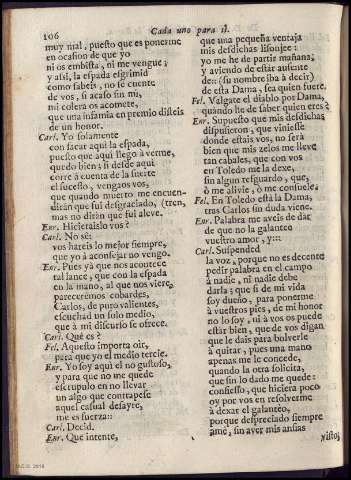 106 Cada uno para sì.
muy mal, puesto que es ponerme
en ocasion de que yo
ni os embista, ni me vengue;
y assi, la espada esgrimid
como sabeis, no se cuente
de vos, si acaso sin mi,
mi colera os acomete,
que una infamia en premio disteis
de un honor.
Carl. Yo solamente
con sacar aqui la espada,
puesto que aqui llego à verme,
quedo bien; si desde aqui
corre à cuenta de la suerte
el sucesso, vengaos vos,
que quando muerto me encuen-
diràn que fui desgraciado, (tren,
mas no diràn que fui aleve.
Enr. Hicieraislo vos?
Carl. No sè:
vos hareis lo mejor siempre,
que yo à aconsejar no vengo.
Enr. Pues yà que nos acontece
tal lance, que con la espada
en la mano, al que nos viere,
pareceremos cobardes,
Carlos, de puro valientes,
escuchad un solo medio,
que à mi discurso se ofrece.
Carl. Què es?
Fel. Aquesto importa oir,
para que yo el medio tercie.
Enr. Yo soy aqui el no gustoso,
y para que no me quede
escrupulo en no llevar
un algo que contrapese
aquel casual desayre,
me es fuerza::
Carl. Decid.
Enr. Que intente,
que una pequeña ventaja
mis desdichas lisonjee:
yo me he de partir mañana,
y aviendo de estàr ausente
de:: (su nombre iba à decir)
de esta Dama, sea quien fuere.
Fel. Valgate el diablo por Dama,
quando he de saber quien eres?
Enr. Supuesto que mis desdichas
dispusieron, que viniesse
donde estais vos, no serà
bien que mis zelos me lleve
tan cabales, que con vos
en Toledo me la dexe,
sin algun resguardo, que,
ò me alivie, ò me consuele.
Fel. En Toledo està la Dama,
tras Carlos sin duda viene.
Enr. Palabra me aveis de dar
de que no la galantee
vuestro amor, y:::
Carl. Suspended
la voz, porque no es decente
pedir palabra en el campo
à nadie, ni nadie debe
darla; que si de mi vida
soy dueño, para ponerme
à vuestros pies, de mi honor
no lo soy, ni à vos os puede
estàr bien, que de vos digan
que le dais para bolverle
à quitar, pues una mano
apenas me le concede,
quando la otra solicita,
que sin lo dado me quede:
confiesso, que hiciera poco
oy por vos en resolverme
à dexar el galantèo,
porque despreciado siempre
amè, sin aver mis ansias
visto;